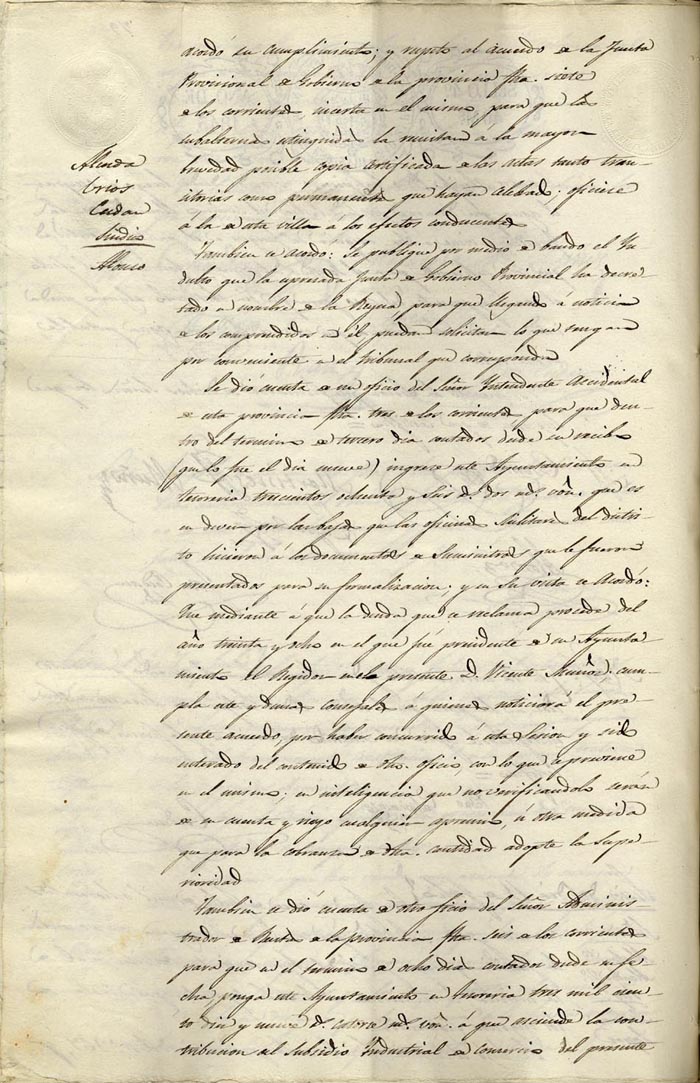 Alcorda
Crios
Cerdan
Sindico
Alonso
acordó su cumplimiento; y respto al acuerdo de la Junta
Provisional de Gobierno de la provincia fha. siete
de los corrientes, inserta en el mismo para que las
subalternas estinguidas la remitan a la mayor
brevedad posible copia certificada de las actas tanto tran-
sitorias como permanentes que hayan celebrado; oficiese
á la de esta villa á los efectos conducentes
Tambien se acordó: Se publique por medio de bando el Yn-
dulto que la espresada Junta de Gobierno Provincial ha decre-
tado a nombre de la Reyna para que llegando á noticia
de los comprendidos en él puedan solicitar lo que tengan
por conveniente en el tribunal que corresponda
Se dió cuenta de un oficio del Señor Yntendente Accidental
de esta provincia fha. tres de los corrientes para que den-
tro del termino de tercero dia contados desde su recibo
(que lo fue el dia nueve) ingrese este Ayuntamiento en
tesoreria trescientos ochenta y seis r.s dos ms. von. que es
en deber por las bajas que las oficinas Militares del distri-
to hicieron á los documentos de Suministros que le fueron
presentados para su formalizacion; y en su vista se acordó:
Que mediante á que la deuda que se reclama procede del
año treinta y ocho en el que fué presidente de su Ayunta-
miento el Regidor en el presente D. Vicente Muñoz, cum-
pla este y demas concejales á quienes noticiará el pre-
sente acuerdo, por haber concurrido á esta sesion y sido
enterado del contenido de dho. oficio, con lo que se previene
en el mismo; en inteligencia que no verificandolo serán
de su cuenta y riesgo cualquier apremio, ú otra medida
que para la cobranza de dha. cantidad adopte la Supe-
rioridad
Tambien se dió cuenta de otro oficio del Señor Adminis-
trador de Rentas de la provincia fha. seis de los corrientes
para que en el termino de ocho dias contados desde su fe-
cha ponga este Ayuntamiento en Tesoreria tres mil cien-
to diez y nueve r.s catorce ms. von. á que asciende la con-
tribucion del subsidio Yndustrial de comercio del presente